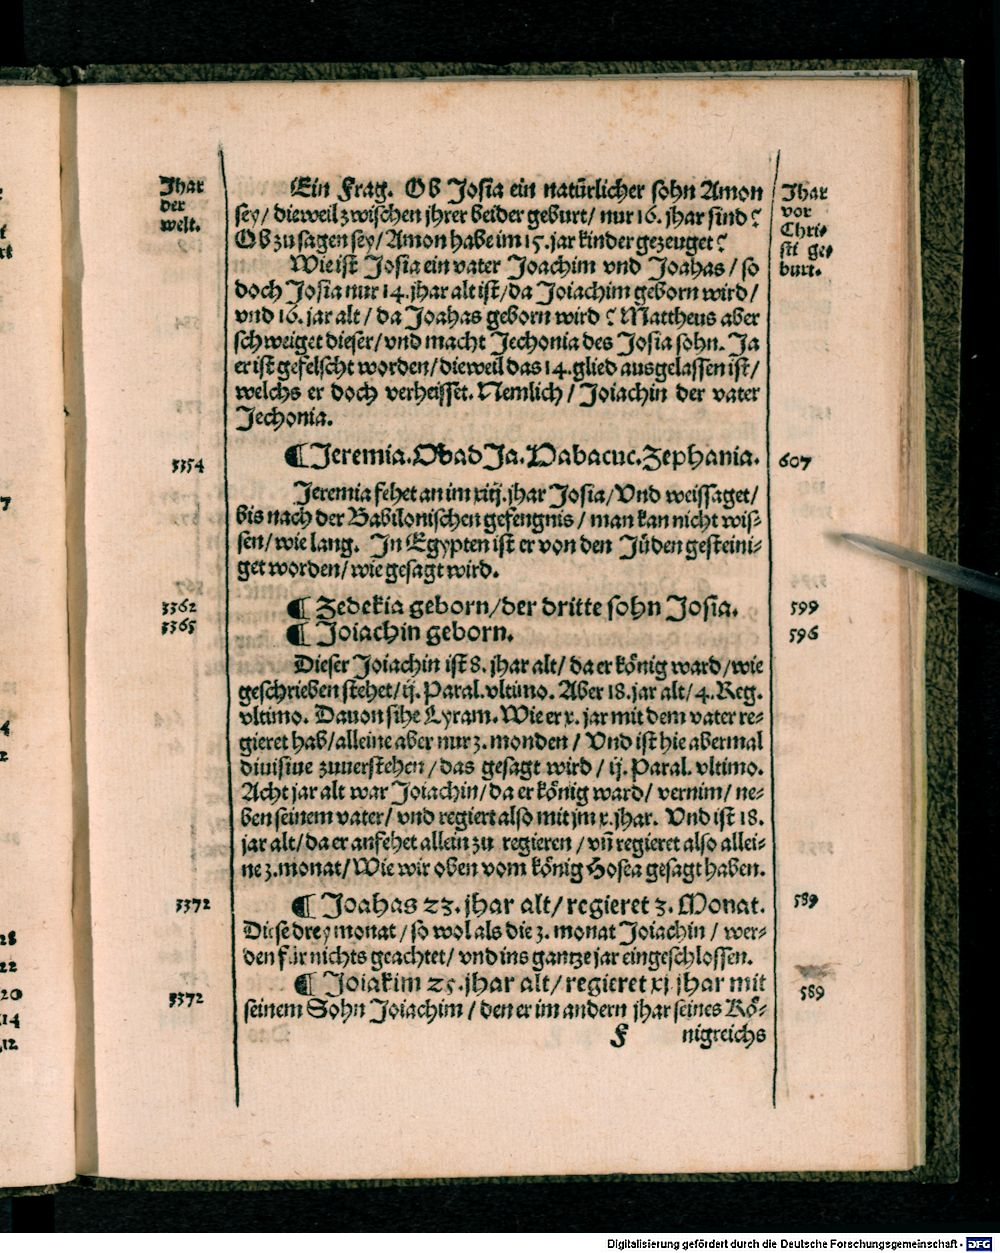 Jhar
der
welt.
Jhar
vor
Chri⸗
sti ge⸗
burt.
Ein Frag. Ob Josia ein natürlicher sohn Amon
sey/ dieweil zwischen jhrer beider geburt/ nur 16. jhar sind?
Ob zu sagen sey/ Amon habe im 15. jar kinder gezeuget?
Wie ist Josia ein vater Joachim vnd Joahas/ so
doch Josia nur 14. jhar alt ist/ da Joiachim geborn wird/
vnd 16. jar alt/ da Joahas geborn wird? Mattheus aber
schweiget dieser/ vnd macht Jechonia des Josia sohn. Ja
er ist gefelscht worden/ dieweil das 14. glied ausgelassen ist/
welchs er doch verheisset. Nemlich/ Joiachin der vater
Jechonia.
3354 ¶ Jeremia. ObadJa. Habacuc. Zephania. 607
Jeremia fehet an im xiij. jhar Josia/ Vnd weissaget/
bis nach der Babilonischen gefengnis/ man kan nicht wis⸗
sen/ wie lang. In Egypten ist er von den Jüden gesteini⸗
get worden/ wie gesagt wird.
3362 ¶ Zedekia geborn/ der dritte sohn Josia. 599
3365 ¶ Joiachin geborn. 596
Dieser Joiachin ist 8. jhar alt/ da er könig ward/ wie
geschrieben stehet/ ij. Paral. vltimo. Aber 18. jar alt/ 4. Reg.
vltimo. Dauon sihe Lyram. Wie er x. jar mit dem vater re⸗
gieret hab/ alleine aber nur 3. monden/ Vnd ist hie abermal
diuisiue zuuerstehen/ das gesagt wird/ ij. Paral. vltimo.
Acht jar alt war Joiachin/ da er könig ward/ vernim/ ne⸗
ben seinem vater/ vnd regiert also mit jm x. jhar. Vnd ist 18.
jar alt/ da er anfehet allein zu regieren/ vñ regieret also allei⸗
ne 3. monat/ Wie wir oben vom könig Hosea gesagt haben.
3372 ¶ Joahas 23. jhar alt/ regieret 3. Monat. 589
Diese drey monat/ so wol als die 3. monat Joiachin/ wer⸗
den für nichts geachtet/ vnd ins gantze jar eingeschlossen.
¶ Joiakim 25. jhar alt/ regieret xj jhar mit
3372 seinem Sohn Joiachim/ den er im andern jhar seines Kö⸗ 589
F nigreichs
7
4
2
28
22
20
14
12
Digitalisierung gefördert durch die Deutsche Forschungsgemeinschaft - DFG